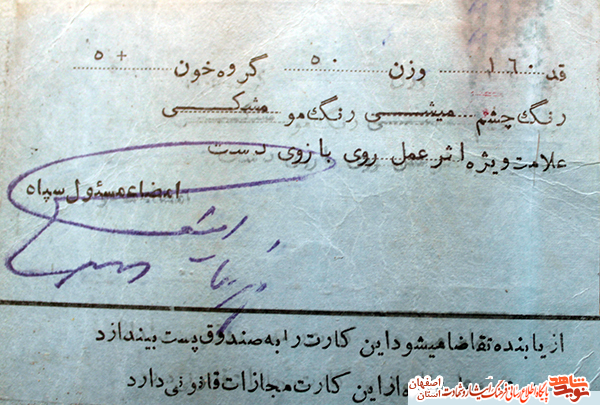 قد ١٦٠ وزن ٥٠ گروه خون ٥+
رنگ چشم میشی رنگ مو مشکی
علامت ویژه اثر عمل روی بازوی دست
امضاء مسئول سپاه
از یابنده تقاضا میشود این کارت را به صندوق پست بیندازد
از این کارت مجازات قانونی دارد
نوید شاهد
پایگاه اطلاع رسانی فرهنگ ایثار و شهادت
اصفهان
استان